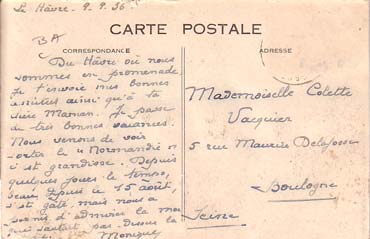 Le Hâvre. 9.9.36.
CARTE POSTALE
CORRESPONDANCE
ADRESSE
Du Hâvre où nous
sommes en promenade
Je t'envoie mes bonnes
amitiés ainsi qu'à ta
chère Maman. Je passe
de très bonnes vacances.
Nous venons de voir
sortir le "Normandie"
c'est grandiose. Depuis
quelques jours le temps,
beau depuis le 15 août,
s'est gâté mais nous a
permis d'admirer la mer
qui sautait par dessus la
Monique
Mademoiselle Colette
Vacquier
5 rue Maurice Delafosse
Boulogne
Seine